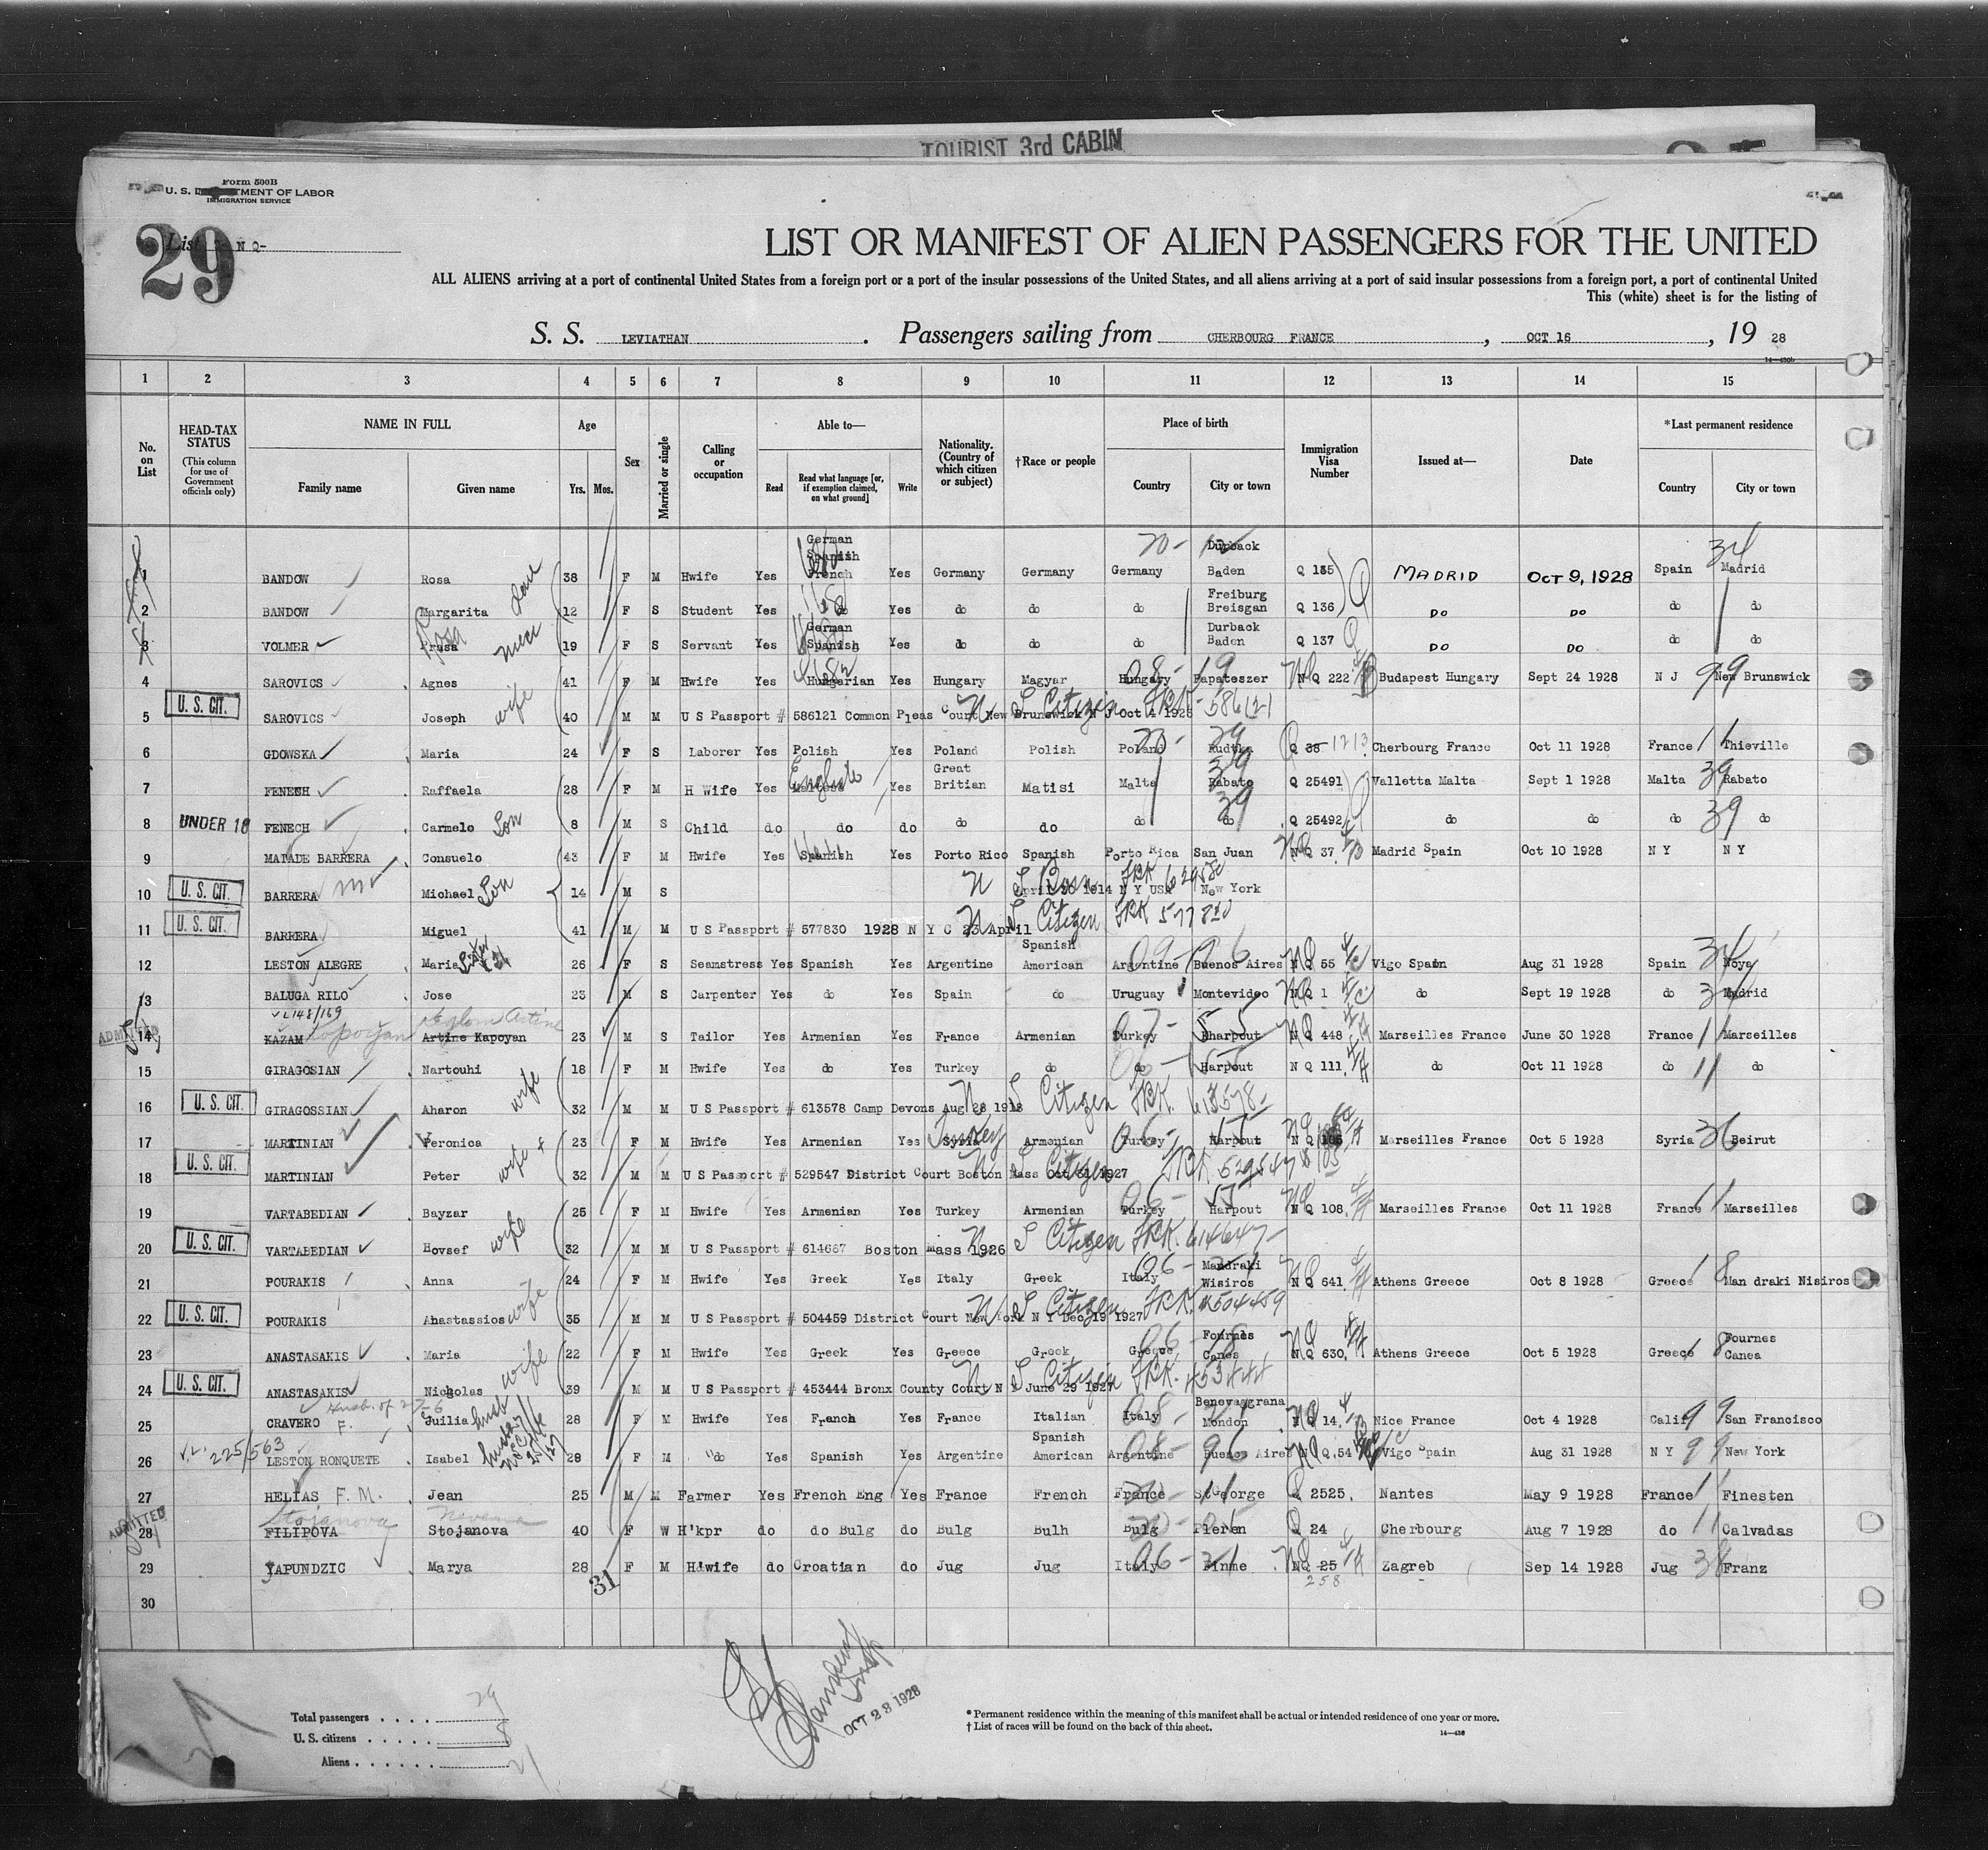 TOURIST 3rd CABIN
Form 500B
U. S. DEPARTMENT OF LABOR
IMMIGRATION SERVICE
29
List N Q-
LIST OR MANIFEST OF ALIEN PASSENGERS FOR THE UNITED
ALL ALIENS arriving at a port of continental United States from a foreign port or a port of the insular possessions of the United States, and all aliens arriving at a port of said insular possessions from a foreign port, a port of continental United
This (white) sheet is for the listing of
S. S. LEVIATHAN. Passengers sailing from CHERBOURG FRANCE, OCT 16, 19 28
1 2 3 4 5 6 7 8 9 10 11 12 13 14 15
No. on List HEAD-TAX STATUS (This column for use of Government officials only) NAME IN FULL Family name Given name Age Yrs. Mos. Sex Married or single Calling or occupation Able to— Read Read what language [or, if exemption claimed, on what ground] Write Nationality. (Country of which citizen or subject) †Race or people Place of birth Country City or town Immigration Visa Number Issued at— Date *Last permanent residence Country City or town
1 BANDOW Rosa 38 F M Hwife Yes German Spanish French Yes Germany Germany Germany Durback Baden Q 135 MADRID OCT 9, 1928 Spain Madrid 34
2 BANDOW Margarita 12 F S Student Yes do Yes do do do Freiburg Breisgan Q 136 DO DO do do
3 VOLMER Prusa Rosa niece 19 F S Servant Yes German Spanish Yes do do do Durback Baden Q 137 DO DO do do
4 SAROVICS Agnes 41 F M Hwife Yes Hungarian Yes Hungary Magyar Hungary Papateszer N Q 222 Budapest Hungary Sept 24 1928 N J 99 New Brunswick
5 U. S. CIT. SAROVICS Joseph wife 40 M M U S Passport # 586121 Common Pleas Court New Brunswick N J Oct 4 1926 Citizen 586121
6 GDOWSKA Maria 24 F S Laborer Yes Polish Yes Poland Polish Poland Rudtka Q 38 1213 Cherbourg France Oct 11 1928 France 11 Thieville
7 FENECH Raffaela 28 F M H Wife Yes English Yes Great Britian Matisi Malta Rabato 39 Q 25491 Valletta Malta Sept 1 1928 Malta 39 Rabato
8 UNDER 18 FENECH Carmelo Son 8 M S Child do do do do do do do 39 Q 25492 do do do 39 do
9 MATADE BARRERA Consuelo 43 F M Hwife Yes Spanish Yes Porto Rico Spanish Porto Rica San Juan N Q 37 Madrid Spain Oct 10 1928 N Y N Y
10 U. S. CIT. BARRERA Michael Son 14 M S April 20 1914 N Y USA New York
11 U. S. CIT. BARRERA Miguel 41 M M U S Passport # 577830 1928 N Y C 23 April Citizen
12 LESTON ALEGRE Maria Sister 26 F S Seamstress Yes Spanish Yes Argentine Spanish American Argentine Buenos Aires N Q 55 Vigo Spain Aug 31 1928 Spain 34 Noya
13 BALUGA RILO Jose 23 M S Carpenter Yes do Yes Spain do Uruguay Montevideo N Q 1 do Sept 19 1928 do 34 Madrid
14 ADMITTED KAZAM Kapoyan Artine Kapoyan 23 M S Tailor Yes Armenian Yes France Armenian Turkey Kharpout N Q 448 Marseilles France June 30 1928 France 11 Marseilles
15 GIRAGOSIAN Nartouhi 18 F M Hwife Yes do Yes Turkey do do Harpout N Q 111 do Oct 11 1928 do 11 do
16 U. S. CIT. GIRAGOSSIAN Aharon wife 32 M M U S Passport # 613578 Camp Devons Aug 28 1918 Citizen 613578
17 MARTINIAN Veronica 23 F M Hwife Yes Armenian Yes Syria Turkey Armenian Turkey Harpout N Q Marseilles France Oct 5 1928 Syria 36 Beirut
18 U. S. CIT. MARTINIAN Peter wife 32 M M U S Passport # 529547 District Court Boston Mass Oct 31 1927 Citizen 529547
19 VARTABEDIAN Bayzar 25 F M Hwife Yes Armenian Yes Turkey Armenian Turkey Harpout N Q 108 Marseilles France Oct 11 1928 France 11 Marseilles
20 U. S. CIT. VARTABEDIAN Hovsef wife 32 M M U S Passport # 614667 Boston Mass 1926 Citizen 614647
21 POURAKIS Anna 24 F M Hwife Yes Greek Yes Italy Greek Italy Mandraki Wisiros N Q 641 Athens Greece Oct 8 1928 Greece 18 Man draki Nisiros
22 U. S. CIT. POURAKIS Ahastassios wife 35 M M U S Passport # 504459 District Court New York N Y Dec 19 1927 Citizen 504459
23 ANASTASAKIS Maria 22 F M Hwife Yes Greek Yes Greece Greek Greece Fournes Canes N Q 630 Athens Greece Oct 5 1928 Greece 18 Fournes Canea
24 U. S. CIT. ANASTASAKIS Nicholas wife 39 M M U S Passport # 453444 Bronx County Court N Y June 29 1927 Citizen 453444
25 CRAVERO F. Juilia 28 F M Hwife Yes Franch Yes France Italian Italy Mondon N Q 14 Nice France Oct 4 1928 Calif 99 San Francisco
26 225/563 LESTON RONQUETE Isabel 28 F M do Yes Spanish Yes Argentine Spanish American Argentine Buenos Aires N Q 54 Vigo Spain Aug 31 1928 N Y 99 New York
27 HELIAS F. M. Jean 25 M M Farmer Yes French Eng Yes France French France St George Q 2525 Nantes May 9 1928 France 11 Finesten
28 ADMITTED FILIPOVA Stojanova Stojanova Nevena 40 F W H'kpr do do Bulg do Bulg Bulh Bulg Pleren Q 24 Cherbourg Aug 7 1928 do 11 Calvadas
29 YAPUNDZIC Marya 28 31 F M H'wife do Croatian do Jug Jug Italy Finme NQ 25 258 Zagreb Sep 14 1928 Jug 38 Franz
30
Total passengers . . . . 29
U. S. citizens . . . . . 8
Aliens . . . . . . 21
OCT 23 1928
* Permanent residence within the meaning of this manifest shall be actual or intended residence of one year or more.
† List of races will be found on the back of this sheet.
14—430